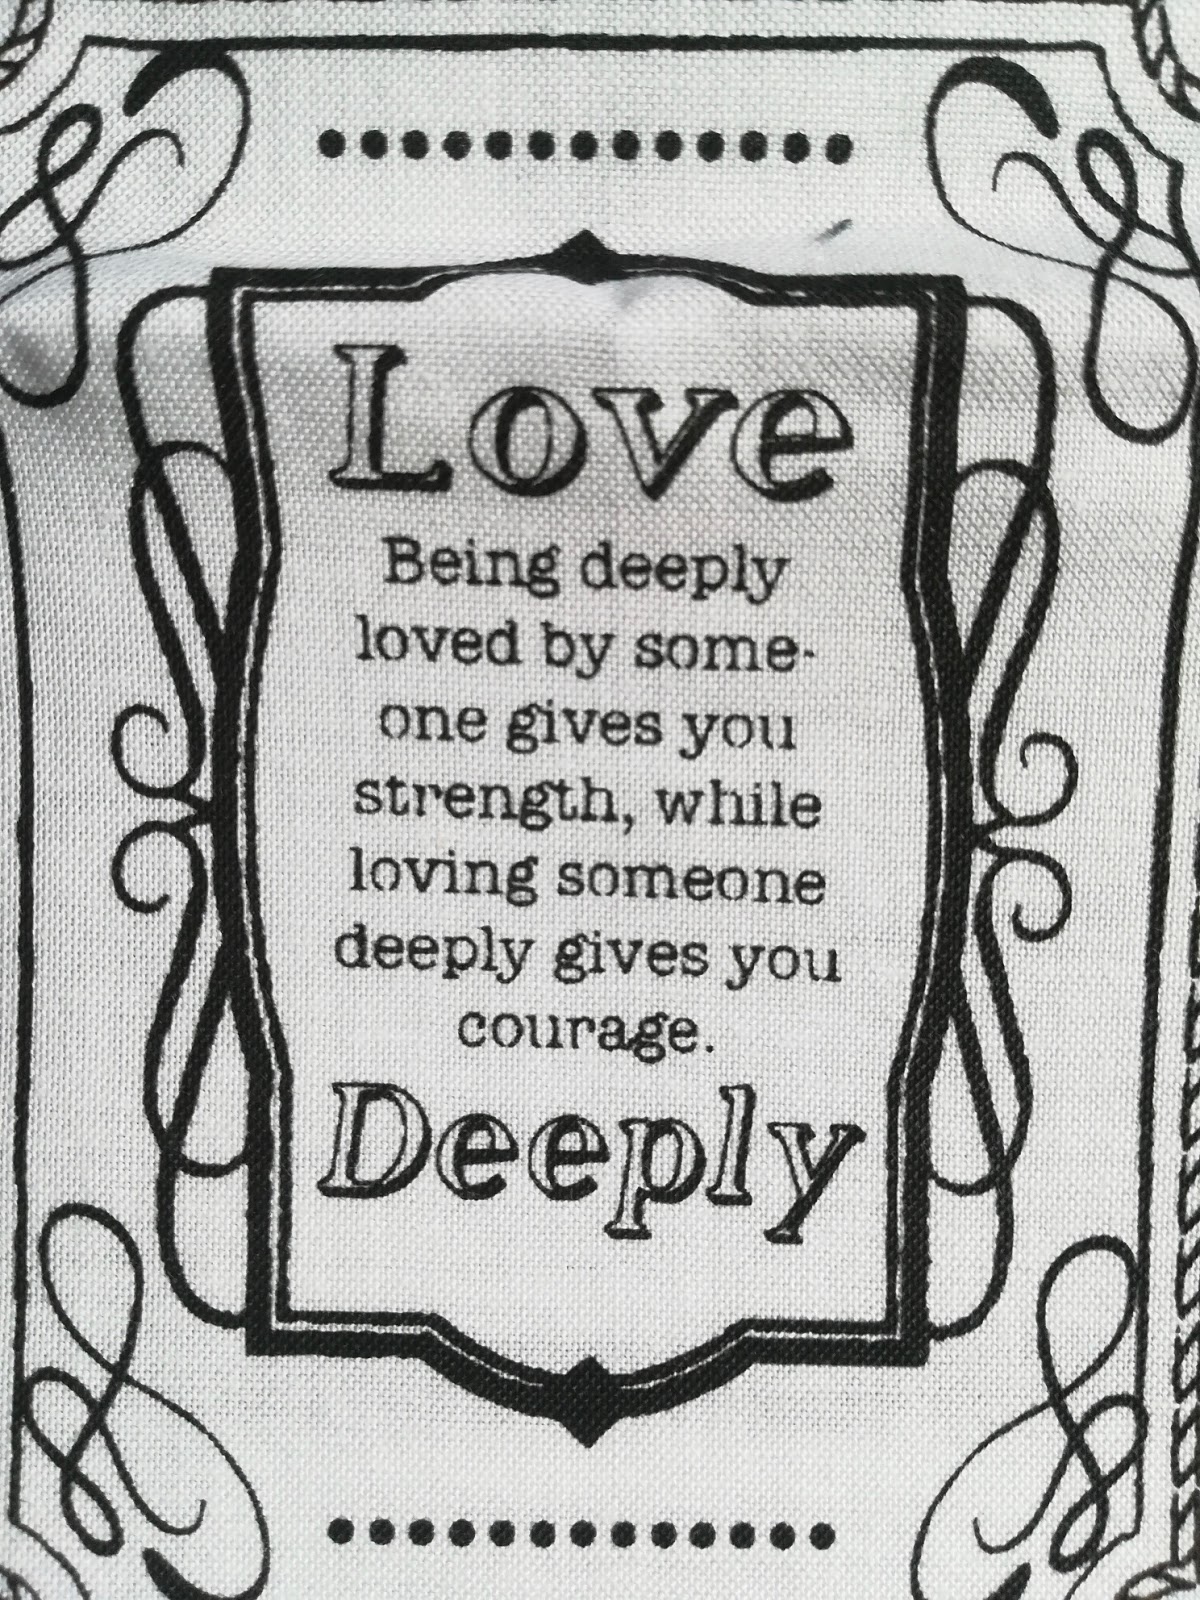 Love
Being deeply
loved by some-
one gives you
strength, while
loving someone
deeply gives you
courage.
Deeply